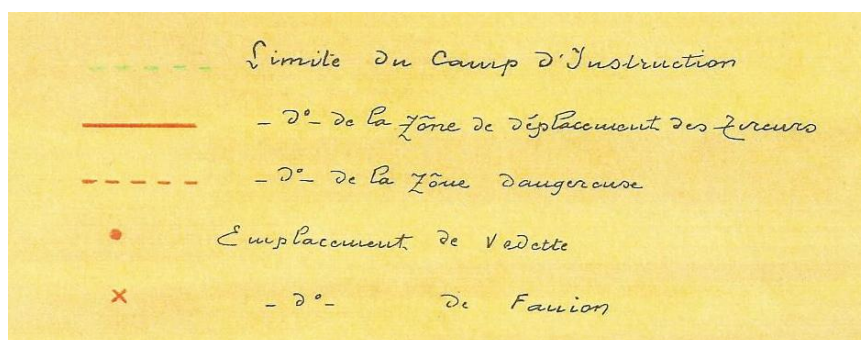 Limite du Camp d'Instruction
_ d°_ de la Zône de déplacement des Tireurs
_ d°_ de la Zône dangereuse
Emplacement de Vedette
_ d°_ de Fanion